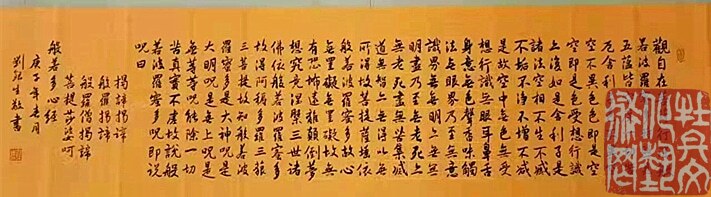 觀自在
若波羅
五蘊皆
厄舍利
空不異色色即是空
空即是色受想行識
亦復如是舍利子是
諸法空相不生不滅
不垢不淨不增不減
是故空中色無受
想行識無眼耳鼻舌
身意無色聲香味觸
法無眼界乃至無意
識界無無明亦無無
明盡乃至無老死亦
無老死盡無苦集滅
道無智亦無得以無
所得故菩提薩埵依
般若波羅蜜多故心
無罣礙無罣礙故無
有恐怖遠離顛倒夢
想究竟涅槃三世諸
佛依般若波羅蜜多
故得阿耨多羅三藐
三菩提故知般若波
羅蜜多是大神咒是
大明咒是無上咒是
無等等咒能除一切
苦真實不虛故說般
若波羅蜜多咒即說
咒曰
揭諦揭諦
般羅揭諦
般羅僧揭諦
菩提莎婆呵
般若多心經
庚子年月
劉生敬書
牡丹文